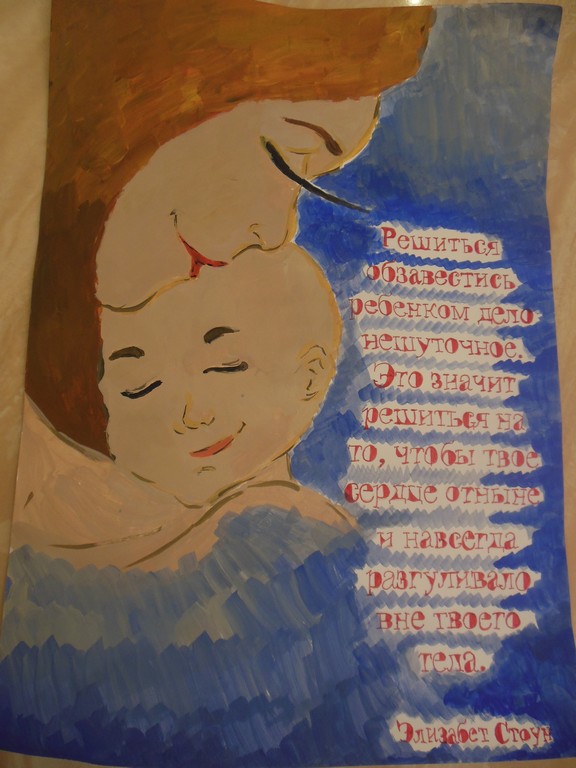 Решиться
обзавестись
ребенком дело
нешуточное.
Это значит
решиться на
то, чтобы твое
сердце отныне
и навсегда
разгуливало
вне твоего
тела.
Элизабет Стоун